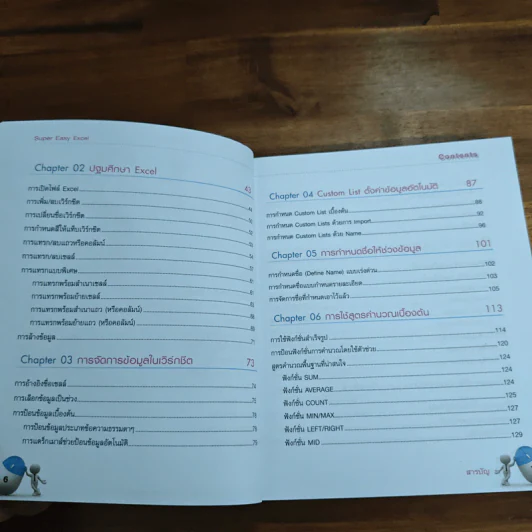 Super Easy Excel
Chapter 02 ปฐมศึกษา Excel
การเปิดไฟล์ Excel
การเพิ่ม/ลบเวิร์กชีต
การเปลี่ยนชื่อเวิร์กชีต
การกำหนดสีให้แท็บเวิร์กชีต
การแทรก/ลบแถวหรือคอลัมน์
การแทรก/ลบเซลล์
การแทรกแบบพิเศษ
การแทรกพร้อมสำเนาเซลล์
การแทรกพร้อมย้ายเซลล์
การแทรกพร้อมสำเนาแถว (หรือคอลัมน์)
การแทรกพร้อมย้ายแถว (หรือคอลัมน์)
การล้างข้อมูล
Chapter 03 การจัดการข้อมูลในเวิร์กชีต 73
การอ้างอิงชื่อเซลล์
การเลือกข้อมูลเป็นช่วง
การป้อนข้อมูลเบื้องต้น
การป้อนข้อมูลประเภทข้อความธรรมดาๆ
การแดร็กเมาส์ช่วยป้อนข้อมูลอัตโนมัติ
6
Contents
Chapter 04 Custom List ตั้งค่าข้อมูลอัตโนมัติ 87
การกำหนด Custom List เบื้องต้น 88
การกำหนด Custom Lists ด้วยการ Import
การกำหนด Custom Lists ด้วย Name
Chapter 05 การกำหนดชื่อให้ช่วงข้อมูล 101
การกำหนดชื่อ (Define Name) แบบเร่งด่วน 102
การกำหนดชื่อแบบกำหนดรายละเอียด 103
การจัดการชื่อที่กำหนดเอาไว้แล้ว 105
Chapter 06 การใช้สูตรคำนวณเบื้องต้น 113
การใช้ฟังก์ชั่นสำเร็จรูป 114
การป้อนฟังก์ชั่นการคำนวณโดยใช้ตัวช่วย 120
สูตรคำนวณพื้นฐานที่น่าสนใจ 124
ฟังก์ชั่น SUM 124
ฟังก์ชั่น AVERAGE 124
ฟังก์ชั่น COUNT 125
ฟังก์ชั่น MIN/MAX 127
ฟังก์ชั่น LEFT/RIGHT 127
ฟังก์ชั่น MID 129
สารบัญ